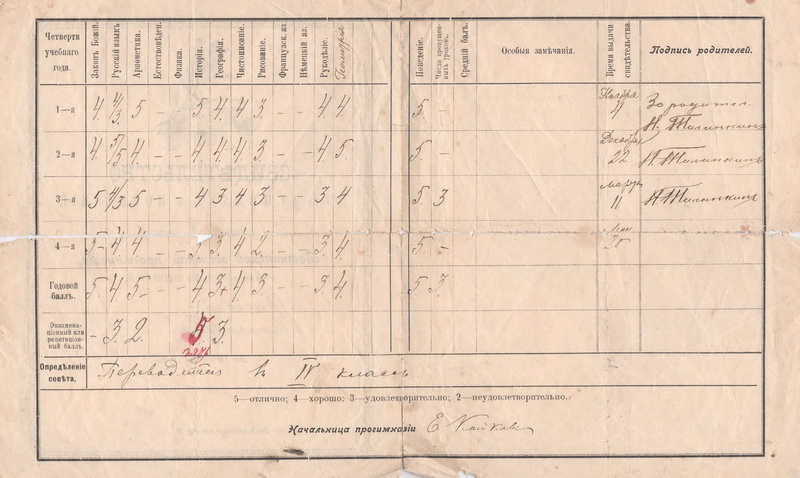 Четверти учебнаго года. Законъ Божій. Русскій языкъ Арѳметика. Естествовѣден. Физика. Исторія. Географія. Чистописаніе. Рисованіе. Французск. яз. Нѣмецкій яз. Рукодѣліе. Поведеніе. Число пропущенныхъ уроковъ. Средній балъ. Особыя замѣчанія. Время выдачи свидѣтельства. Подпись родителей.
1—я 4. 4/3. 5 – – 5 4. 4 3. – – 4 4. 5. – Ноября За родител.
Н. Талинкинъ
2—я 4. 5/5 4. – – 4. 4. 4. 3. – – 4. 5 5. – Декабря 22 Н. Талинкинъ
3—я 5 4/3 5 – – 4 3 4 3 – – 3 4 5. 3 Мартъ 11 Н. Талинкинъ
4—я 5– 4. 4. – – 3. 3. 4 2. – – 3. 4. 5. – 25
Годовой баллъ. 5. 4 5– – – 4. 3+ 4. 3. – – 3 4. 5 3.
Экзаменаціонный или репетиціонный балъ. – 3. 2. 5. 3.
Опредѣленіе совѣта. Переводится въ IV классъ
5—отлично; 4—хорошо; 3—удовлетворительно; 2—неудовлетворительно.
Начальница прогимназіи Е.